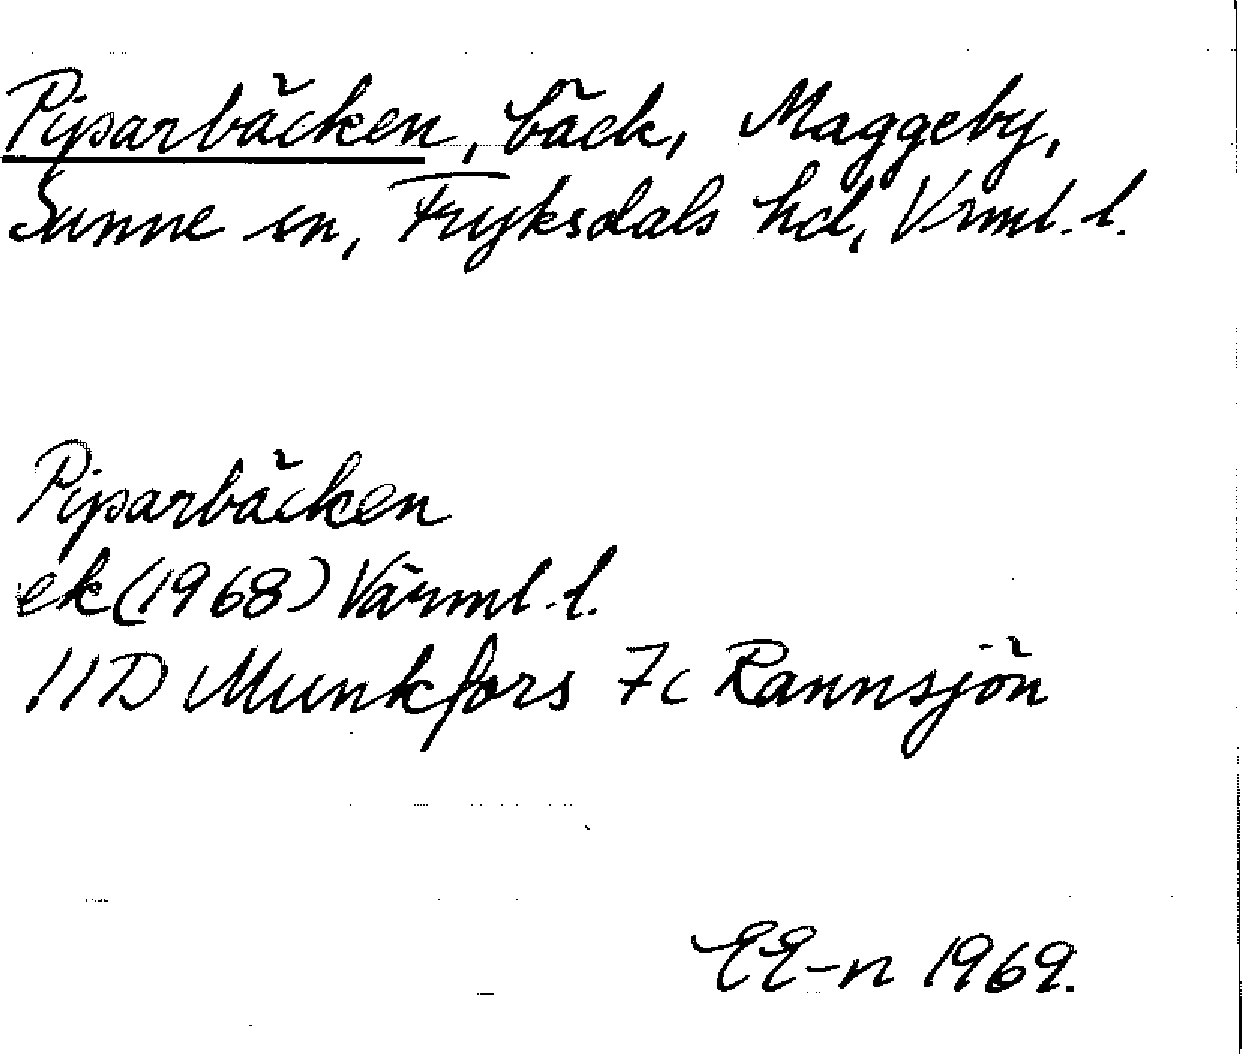 Piparbäcken, bäck, Maggeby,
Sunne sn, Fryksdals hd, Vrml. l.
Piparbäcken
ek (1968) Värml. l.
11D Munkfors 7c Rannsjön
EE-n 1969.